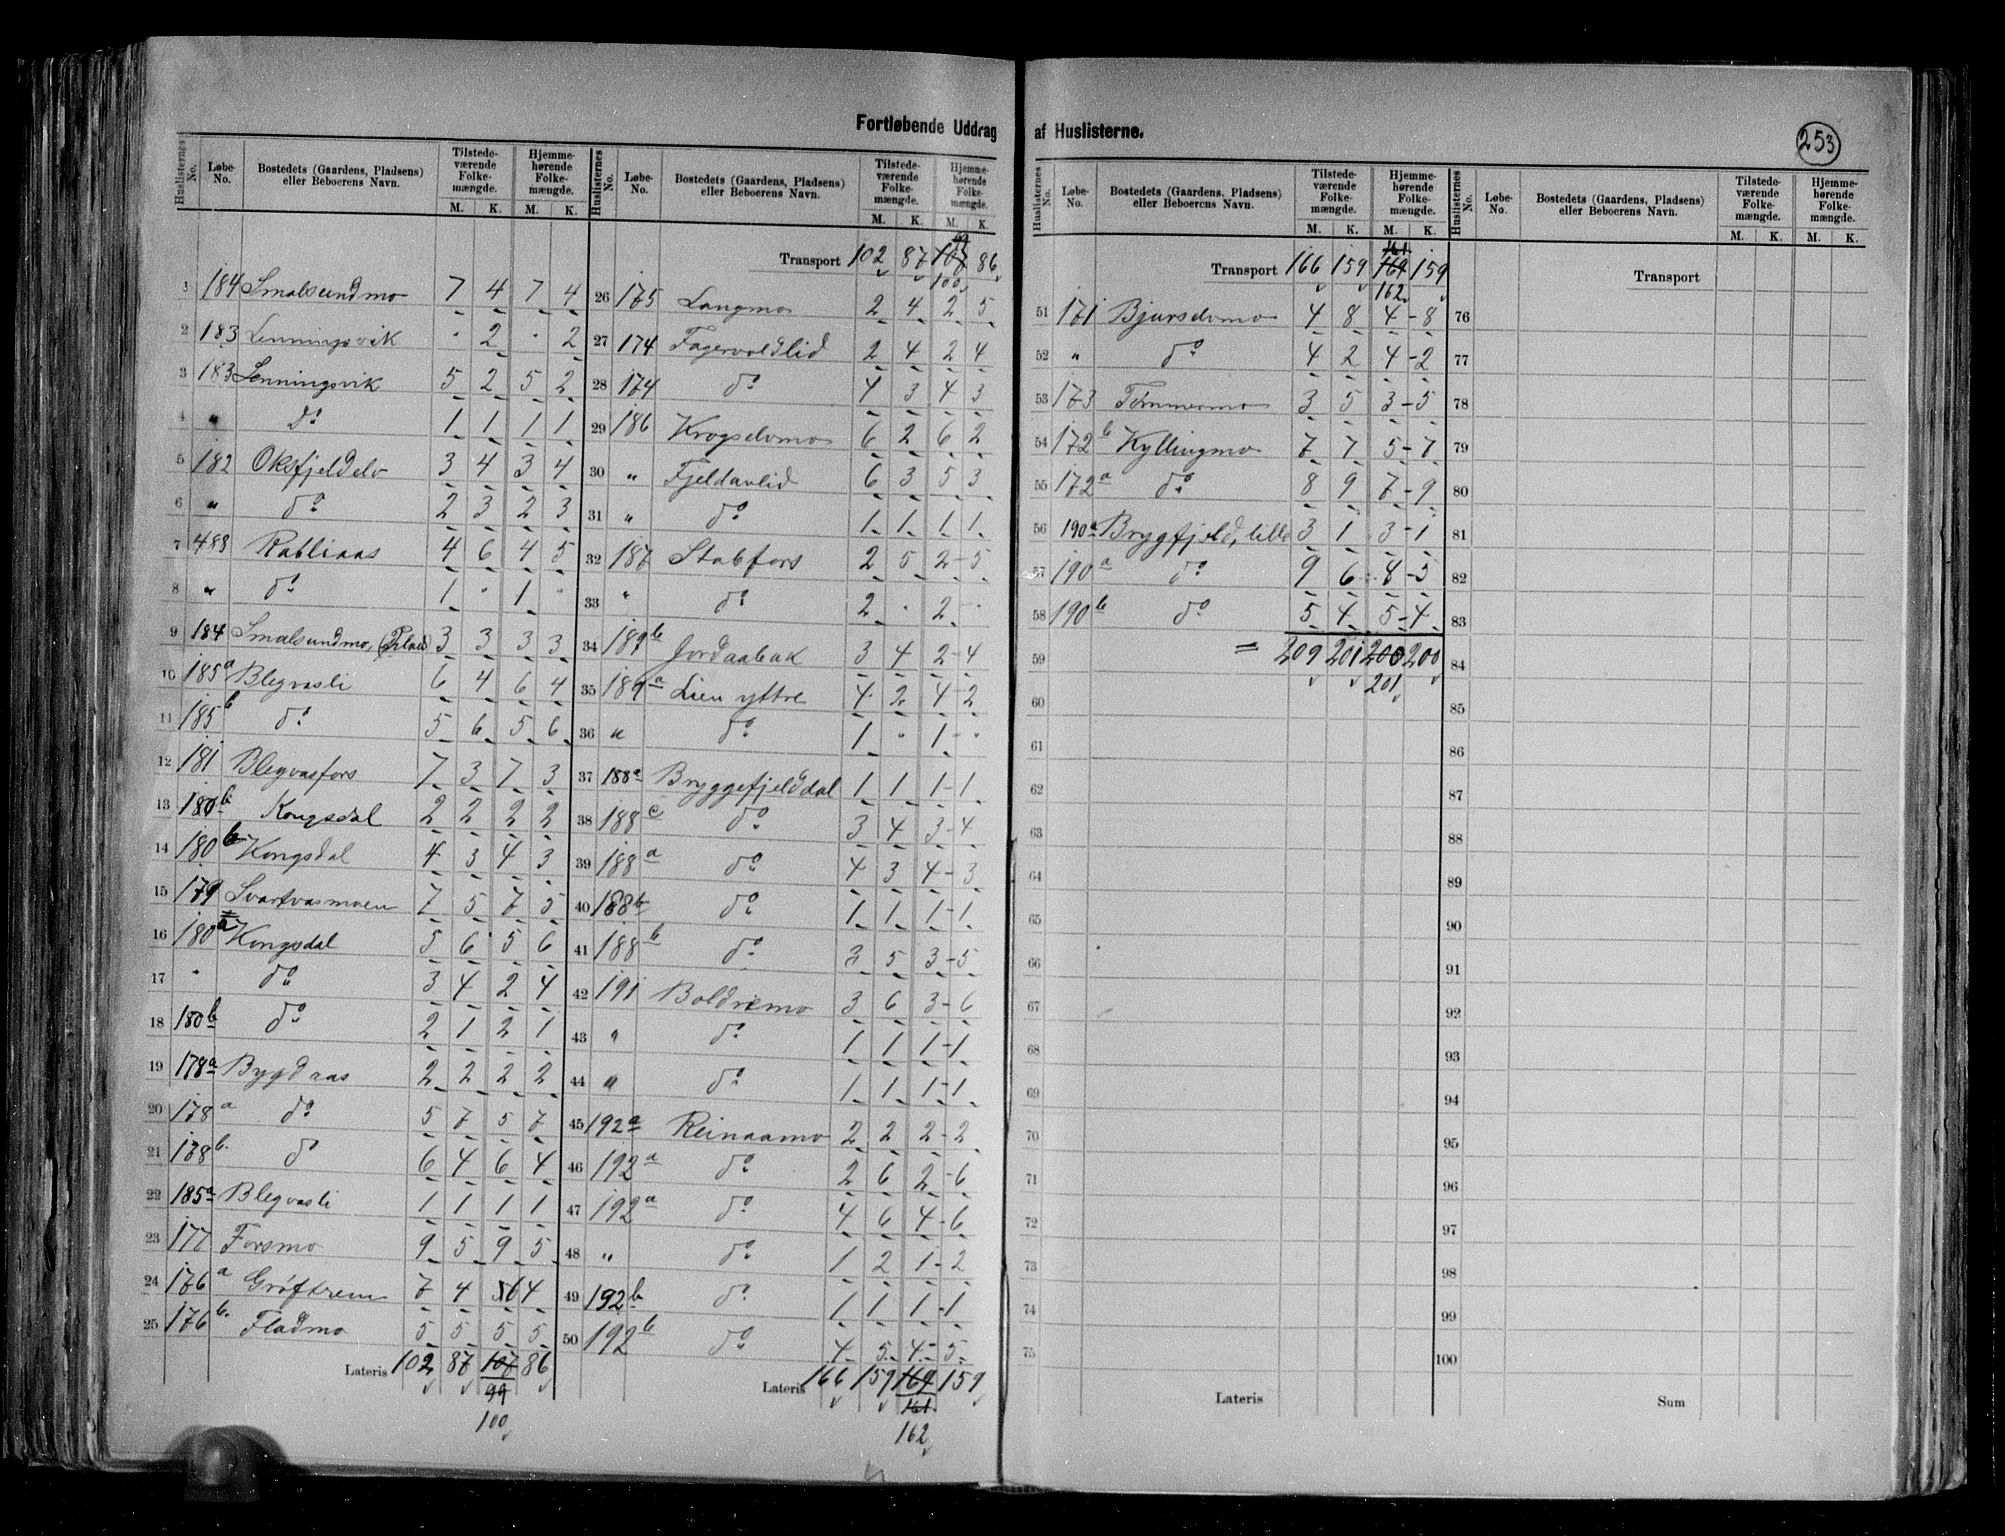 Fortløbende Uddrag af Huslisterne.
253
Huslisternes No. Løbe-No. Bostedets (Gaardens, Pladsens) eller Beboerens Navn. Tilstedeværende Folkemængde. M. K. Hjemmehørende Folkemængde. M. K.
1 184 Smalsundmo 7 4 7 4
2 183 Lenningsvik " 2 " 2
3 183 Lenningsvik 5 2 5 2
4 " do 1 1 1 1
5 182 Oksfjeldelv 3 4 3 4
6 " do 2 3 2 3
7 488 Rabliaas 4 6 4 5
8 " do 1 " 1 "
9 184 Smalsundmo, (Plads) 3 3 3 3
10 185a Blegvasli 6 4 6 4
11 185b do 5 6 5 6
12 181 Blegvasfors 7 3 7 3
13 180b Kongsdal 2 2 2 2
14 180b Kongsdal 4 3 4 3
15 179 Svartvasmoen 7 5 7 5
16 180a Kongsdal 5 6 5 6
17 " do 3 4 2 4
18 180b do 2 1 2 1
19 178a Bygdaas 2 2 2 2
20 178a do 5 7 5 7
21 178b. do 6 4 6 4
22 185a Blegvasli 1 1 1 1
23 177 Forsmo 9 5 9 5
24 176a Grøftrem 7 4 6 4
25 176b. Fladmo 5 5 5 5
Lateris 102 87 107 86
99
100
Huslisternes No. Løbe-No. Bostedets (Gaardens, Pladsens) eller Beboerens Navn. Tilstedeværende Folkemængde. M. K. Hjemmehørende Folkemængde. M. K.
99
Transport 102 87 107 86
100
26 175 Langmo 2 4 2 5
27 174 Fagervoldlid 2 4 2 4
28 174 do 4 3 4 3
29 186 Krogselvmo 6 2 6 2
30 " Fjeldavlid 6 3 5 3
31 " do 1 1 1 1
32 187 Stabfors 2 5 2-5
33 " do 2 " 2-"
34 189b Jordaabak 3 4 2-4
35 189a Lien yttre 4 2 4-2
36 " do 1 " 1-"
37 188a Bryggefjelddal 1 1 1-1
38 188c do 3 4 3-4
39 188a do 4 3 4-3
40 188b do 1 1 1-1
41 188b do 3 5 3-5
42 191 Boldremo 3 6 3-6
43 " do 1 1 1-1
44 " do 1 1 1-1
45 192a Reinaamo 2 2 2-2
46 192a do 2 6 2-6
47 192a do 4 6 4-6
48 " do 1 2 1-2
49 192b do 1 1 1-1
50 192b do 4 5 4-5
Lateris 166 159 169 159
161
162
Huslisternes No. Løbe-No. Bostedets (Gaardens, Pladsens) eller Beboerens Navn. Tilstedeværende Folkemængde. M. K. Hjemmehørende Folkemængde. M. K.
161
Transport 166 159 169 159
162
51 171 Bjurselvmo 4 8 4-8
52 " do 4 2 4-2
53 173 Tømmermo 3 5 3-5
54 172b Kyllingmo 7 7 5-7
55 172a do 8 9 7-9
56 190a Brygfjeld, lille 3 1 3-1
57 190a do 9 6 8-5
58 190b do 5 4 5-4
59 = 209 201 200 200
60 201
61
62
63
64
65
66
67
68
69
70
71
72
73
74
75
Lateris
Huslisternes No. Løbe-No. Bostedets (Gaardens, Pladsens) eller Beboerens Navn. Tilstedeværende Folkemængde. M. K. Hjemmehørende Folkemængde. M. K.
Transport
76
77
78
79
80
81
82
83
84
85
86
87
88
89
90
91
92
93
94
95
96
97
98
99
100
Sum